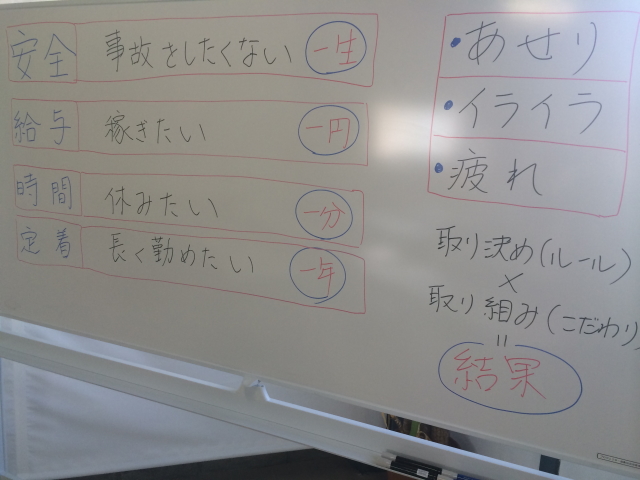 安全 事故をしたくない 一生
給与 稼ぎたい 一円
時間 休みたい 一分
定着 長く勤めたい 一年
・あせり
・イライラ
・疲れ
取り決め(ルール)
×
取り組み(こだわり)
=
結果